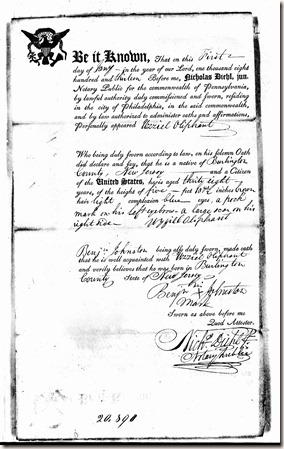 Be it Known, That on this First
day of May in the year of our Lord, one thousand eight
hundred and thirteen Before me, Nicholas Diehl, jun.
Notary Public for the commonwealth of Pennsylvania,
by lawful authority duly commissioned and sworn, residing
in the city of Philadelphia, in the said commonwealth,
and by law authorized to administer oaths and affirmations,
Personally appeared Uzziel Oliphant
Who being duly sworn according to law, on his solemn Oath
did declare and say, that he is a native of Burlington
County, New Jersey and a Citizen
of the United States, he is aged thirty eight
years, of the height of five feet inches brown
hair light complexion blue eyes, a pock
mark on his left eyebrow a large scar on his
right Uzziel Oliphant
Benjn Johnston being also duly sworn, made oath
that he is well acquainted with Uzziel Oliphant
and verily believes that he was born in Burlington
County State of New Jersey
his
Benjn X Johnston
Mark
Sworn as above before me
Quod Attestor
Nichs Diehl Jr
Notary Public
20.890